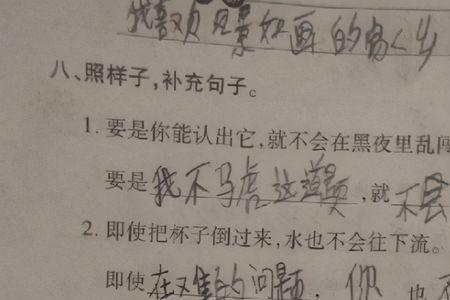 我喜欢风景如画的家乡
八、照样子,补充句子。
1. 要是你能认出它,就不会在黑夜里乱闯
要是我不马虎这道题,就不会
2. 即使把杯子倒过来,水也不会往下流。
即使在难的问题,你也不